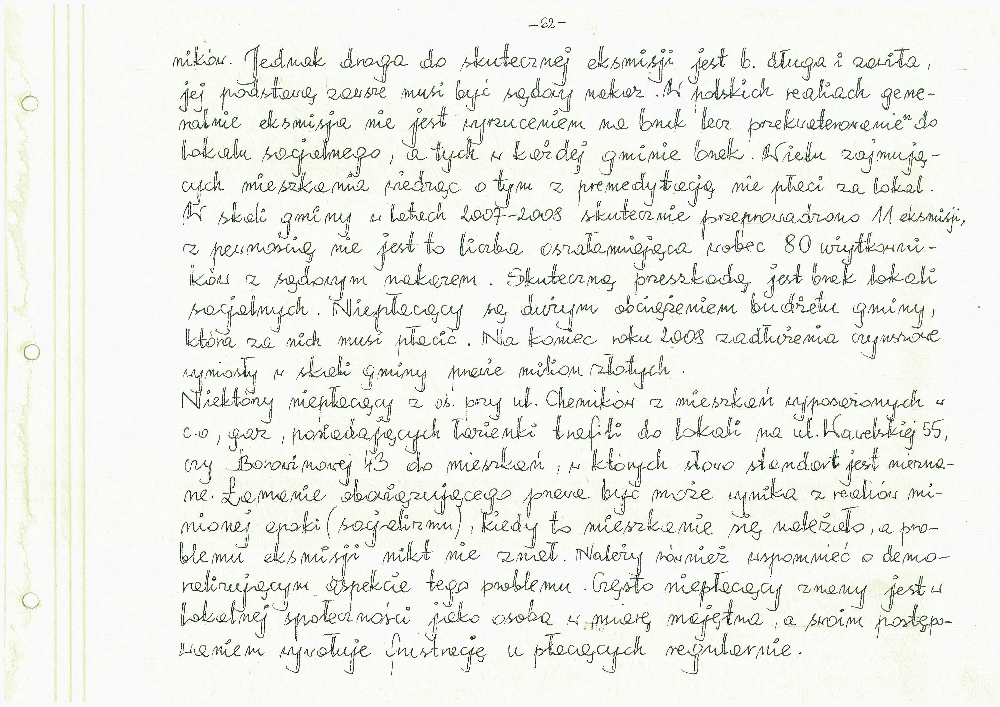 -62-
ników. Jednak droga do skutecznej eksmisji jest b. długa i zawiła,
jej podstawą zawsze musi być sądowy nakaz. W polskich realiach gene-
ralnie eksmisja nie jest wyrzuceniem na bruk lecz przekwaterowanie" do
lokalu socjalnego, a tych w każdej gminie brak. Wielu zajmują-
cych mieszkania wiedząc o tym z premedytacją nie płaci za lokal.
W skali gminy w latach 2007-2008 skutecznie przeprowadzono 11 eksmisji,
z pewnością nie jest to liczba oszałamiająca wobec 80 użytkowni-
ków z sądowym nakazem. Skuteczną przeszkodą jest brak lokali
socjalnych. Niepłacący są dużym obciążeniem budżetu gminy,
która za nich musi płacić. Na koniec roku 2008 zadłużenia czynszowe
wyniosły w skali gminy prawie milion złotych.
Niektóry niepłacący z oś. przy ul. Chemików z mieszkań wyposażonych w
c.o, gaz, posiadających łazienki trafili do lokali na ul. Kawelskiej 55,
czy Borowinowej 43 do mieszkań, w których słowo standart jest niezna-
ne. Łamanie obowiązującego prawa być może wynika z realiów mi-
nionej epoki (socjalizmu), kiedy to mieszkanie się należało, a pro-
blemu eksmisji nikt nie znał. Należy również wspomnieć o demo-
ralizującym aspekcie tego problemu. Często niepłacący znany jest w
lokalnej społeczności jako osoba w miarę majętna, a swoim postępo-
waniem wywołuje frustrację u płacących regularnie.